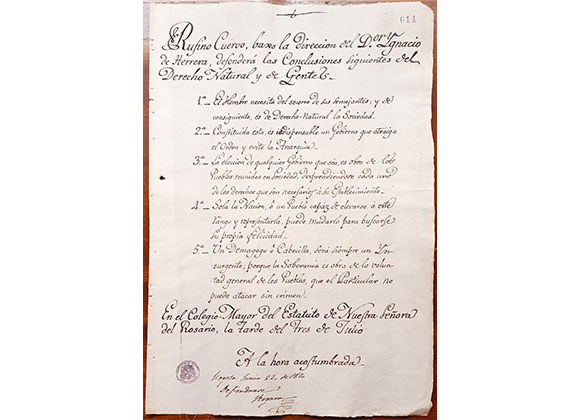 6
044
Rufino Cuervo, baxo la direccion del D.or Ygnacio
de Herrera, defenderá las Conclusiones siguientes del
Derecho Natural y de Gentes.
1.a El Hombre necesita del socorro de sus semejantes; y de
consiguiente, es de Derecho Natural la Sociedad.
2.a Constituida ésta, es indispensable un Gobierno que atraiga
el Orden y evite la Anarquia.
3.a La eleccion de qualquier Gobierno que sea, es obra de los
Pueblos reunidos en Sociedad, desprendiendose cada uno
de los derechos que son necesarios á su Establecimiento.
4.a Sola la Nacion, ó un Pueblo capáz de elevarse á este
rango y representarla, puede mudarlo para buscarse
su propia felicidad.
5.a Un Demagógo ó Cabecilla, será siempre un Yn-
surgente; porque la Soberania es obra de la volun-
tad general de los Pueblos, que el particular no
puede atacar sin crimen.
En el Colegio Mayor del Estatúto de Nuestra Señora
del Rosario, la tarde del tres de Julio
A la hora acostumbrada.
Junio 22 de